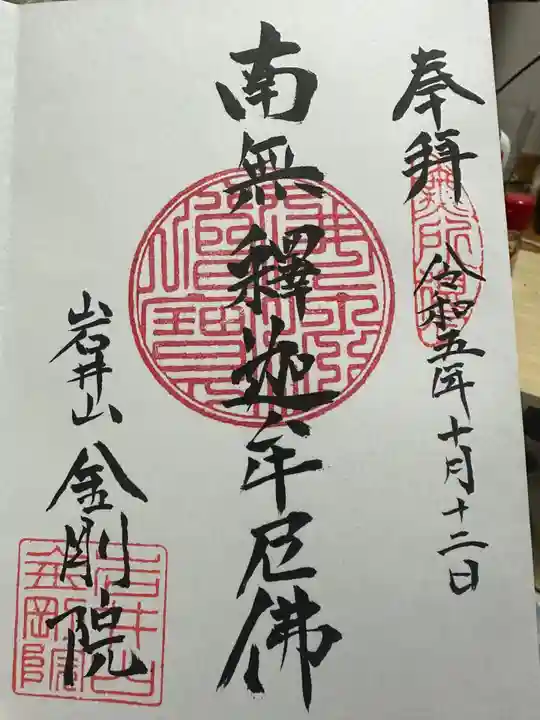 奉拜
令和五年十月十二日
南無釋迦牟尼佛
岩井山
金剛院